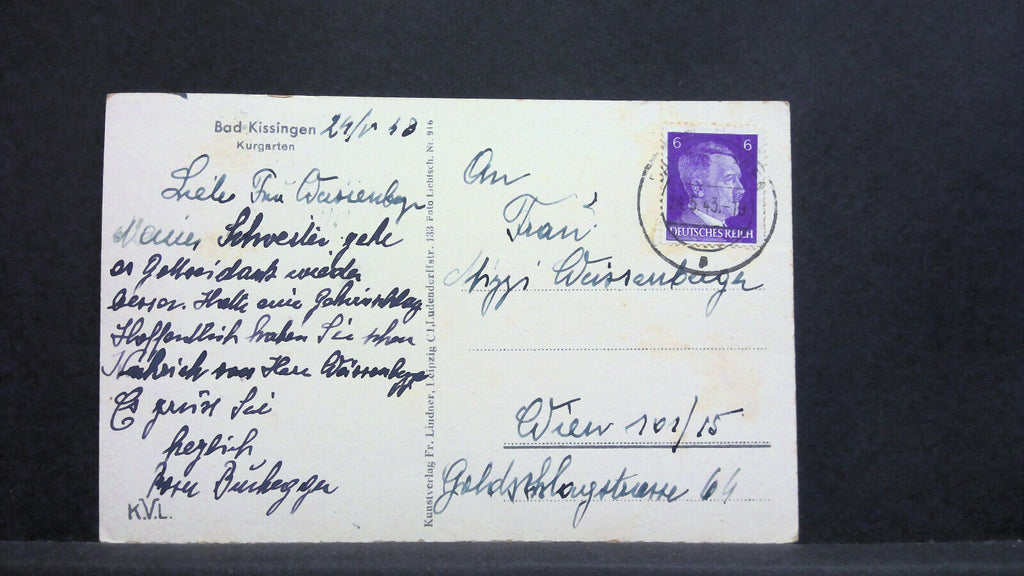 Bad Kissingen 24/V 43
Kurgarten
Liebe Frau Weissenberger
Meiner Schwester geht
es Gottseidank wieder
besser. Hatte eine Gehirnschlag
Hoffentlich haben Sie schon
Nachricht von Herr Weissenberger
Es grüsst Sie
herzlich
Burkegger
K.V.L.
Kunstverlag Fr. Lindner, Leipzig C1, Ludendorffstr. 133 Foto Liebisch. Nr. 916
An
Frau
Mizzi Weissenberger
Wien 101/15
Goldschlagstrasse 64
6 6
DEUTSCHES REICH
.5.43.-